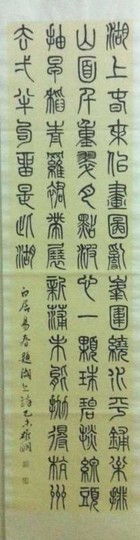 湖上春來似畫圖亂峯圍繞水平鋪松排
山面千重翠月點波心一顆珠碧毯線頭
抽早稻青羅裙帶展新蒲未能拋得杭州
去弌半勾留是此湖
白居易春題湖上詩乙未